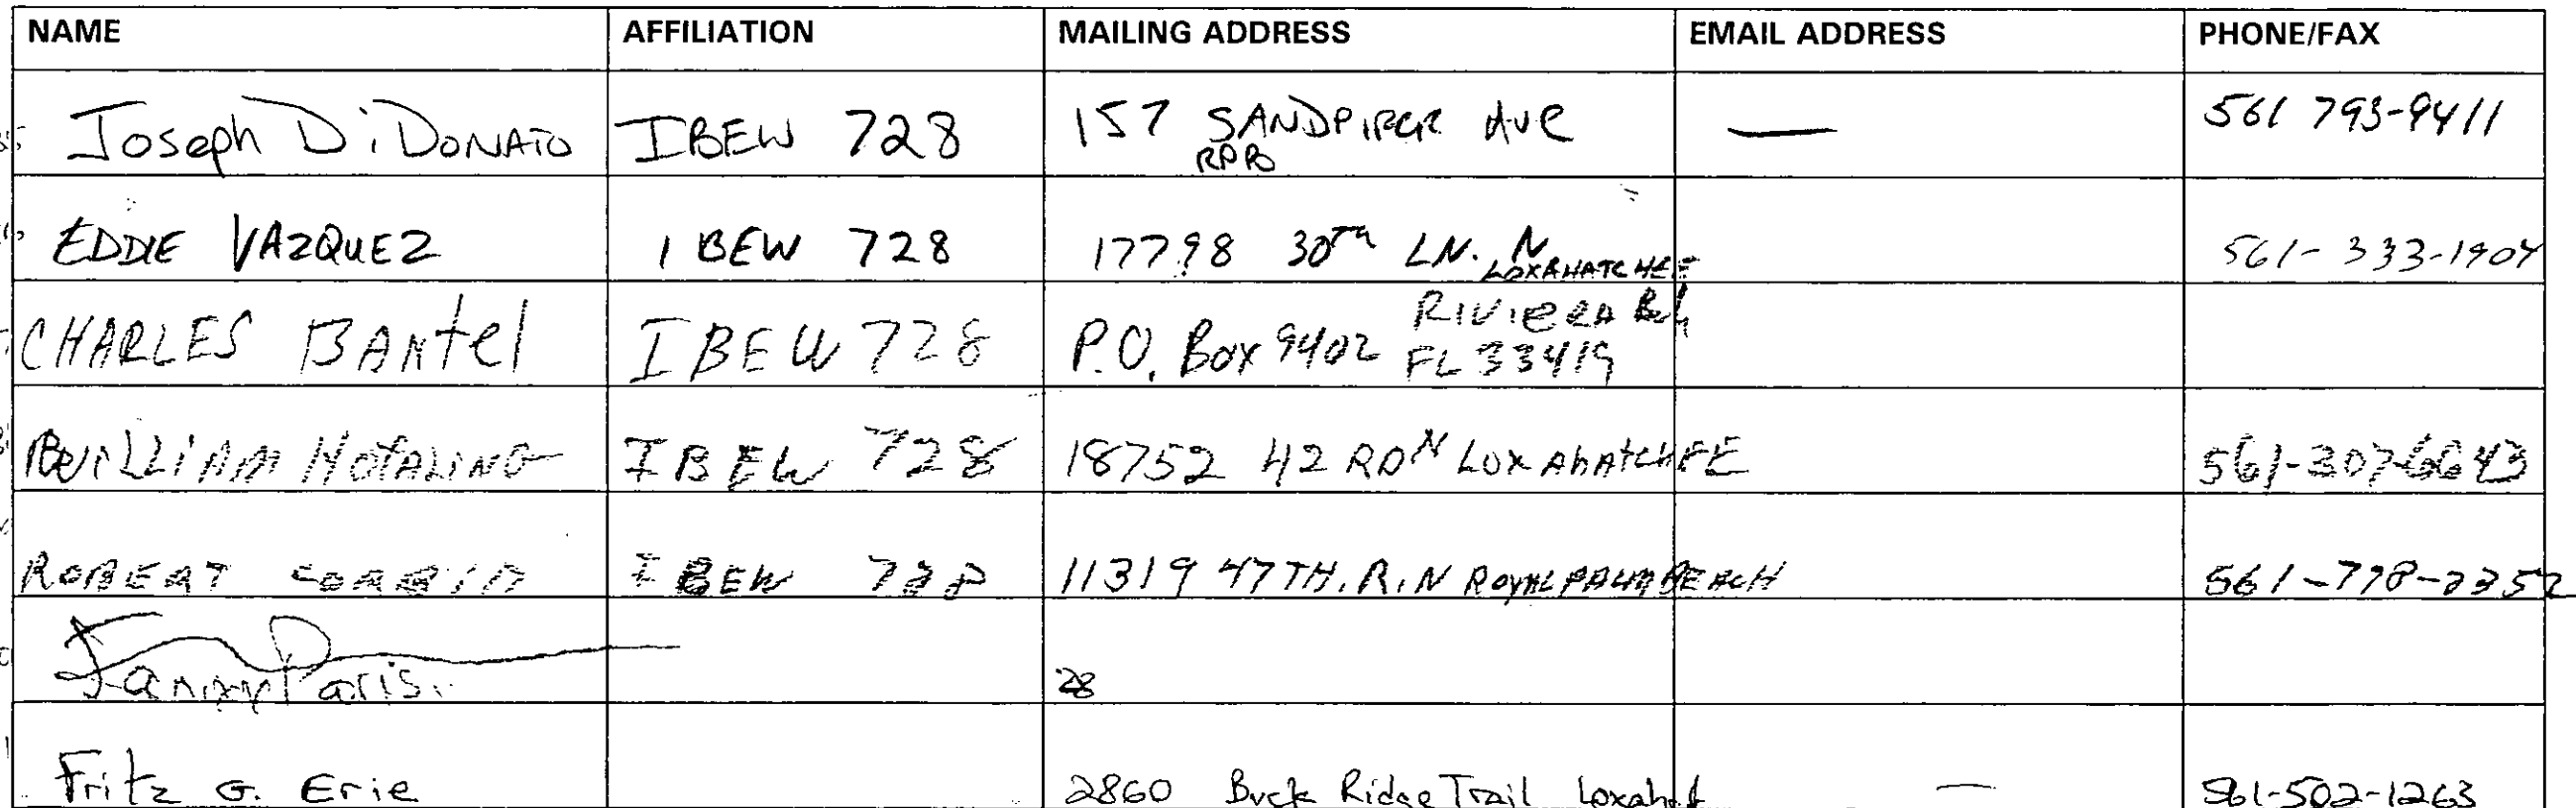 NAME AFFILIATION MAILING ADDRESS EMAIL ADDRESS PHONE/FAX
Joseph DiDONATO IBEW 728 157 SANDPIPER AVE — 561 793-9411
RPB
EDDIE VAZQUEZ IBEW 728 17798 30TH LN. N 561-333-1904
LOXAHATCHEE
RIVIERA Bch
CHARLES BANtel IBEW 728 P.O. Box 9402 FL 33419
WILLIAM HOTALING IBEW 728 18752 42 RD N LOXAhAtCHEE 561-307-6643
ROBERT CORBIN IBEW 728 11319 47TH. R.N ROYAL PALM BEACH 561-778-2352
Paris 28
Fritz G. Erie 2860 Buck Ridge Trail Loxahat — 561-502-1263